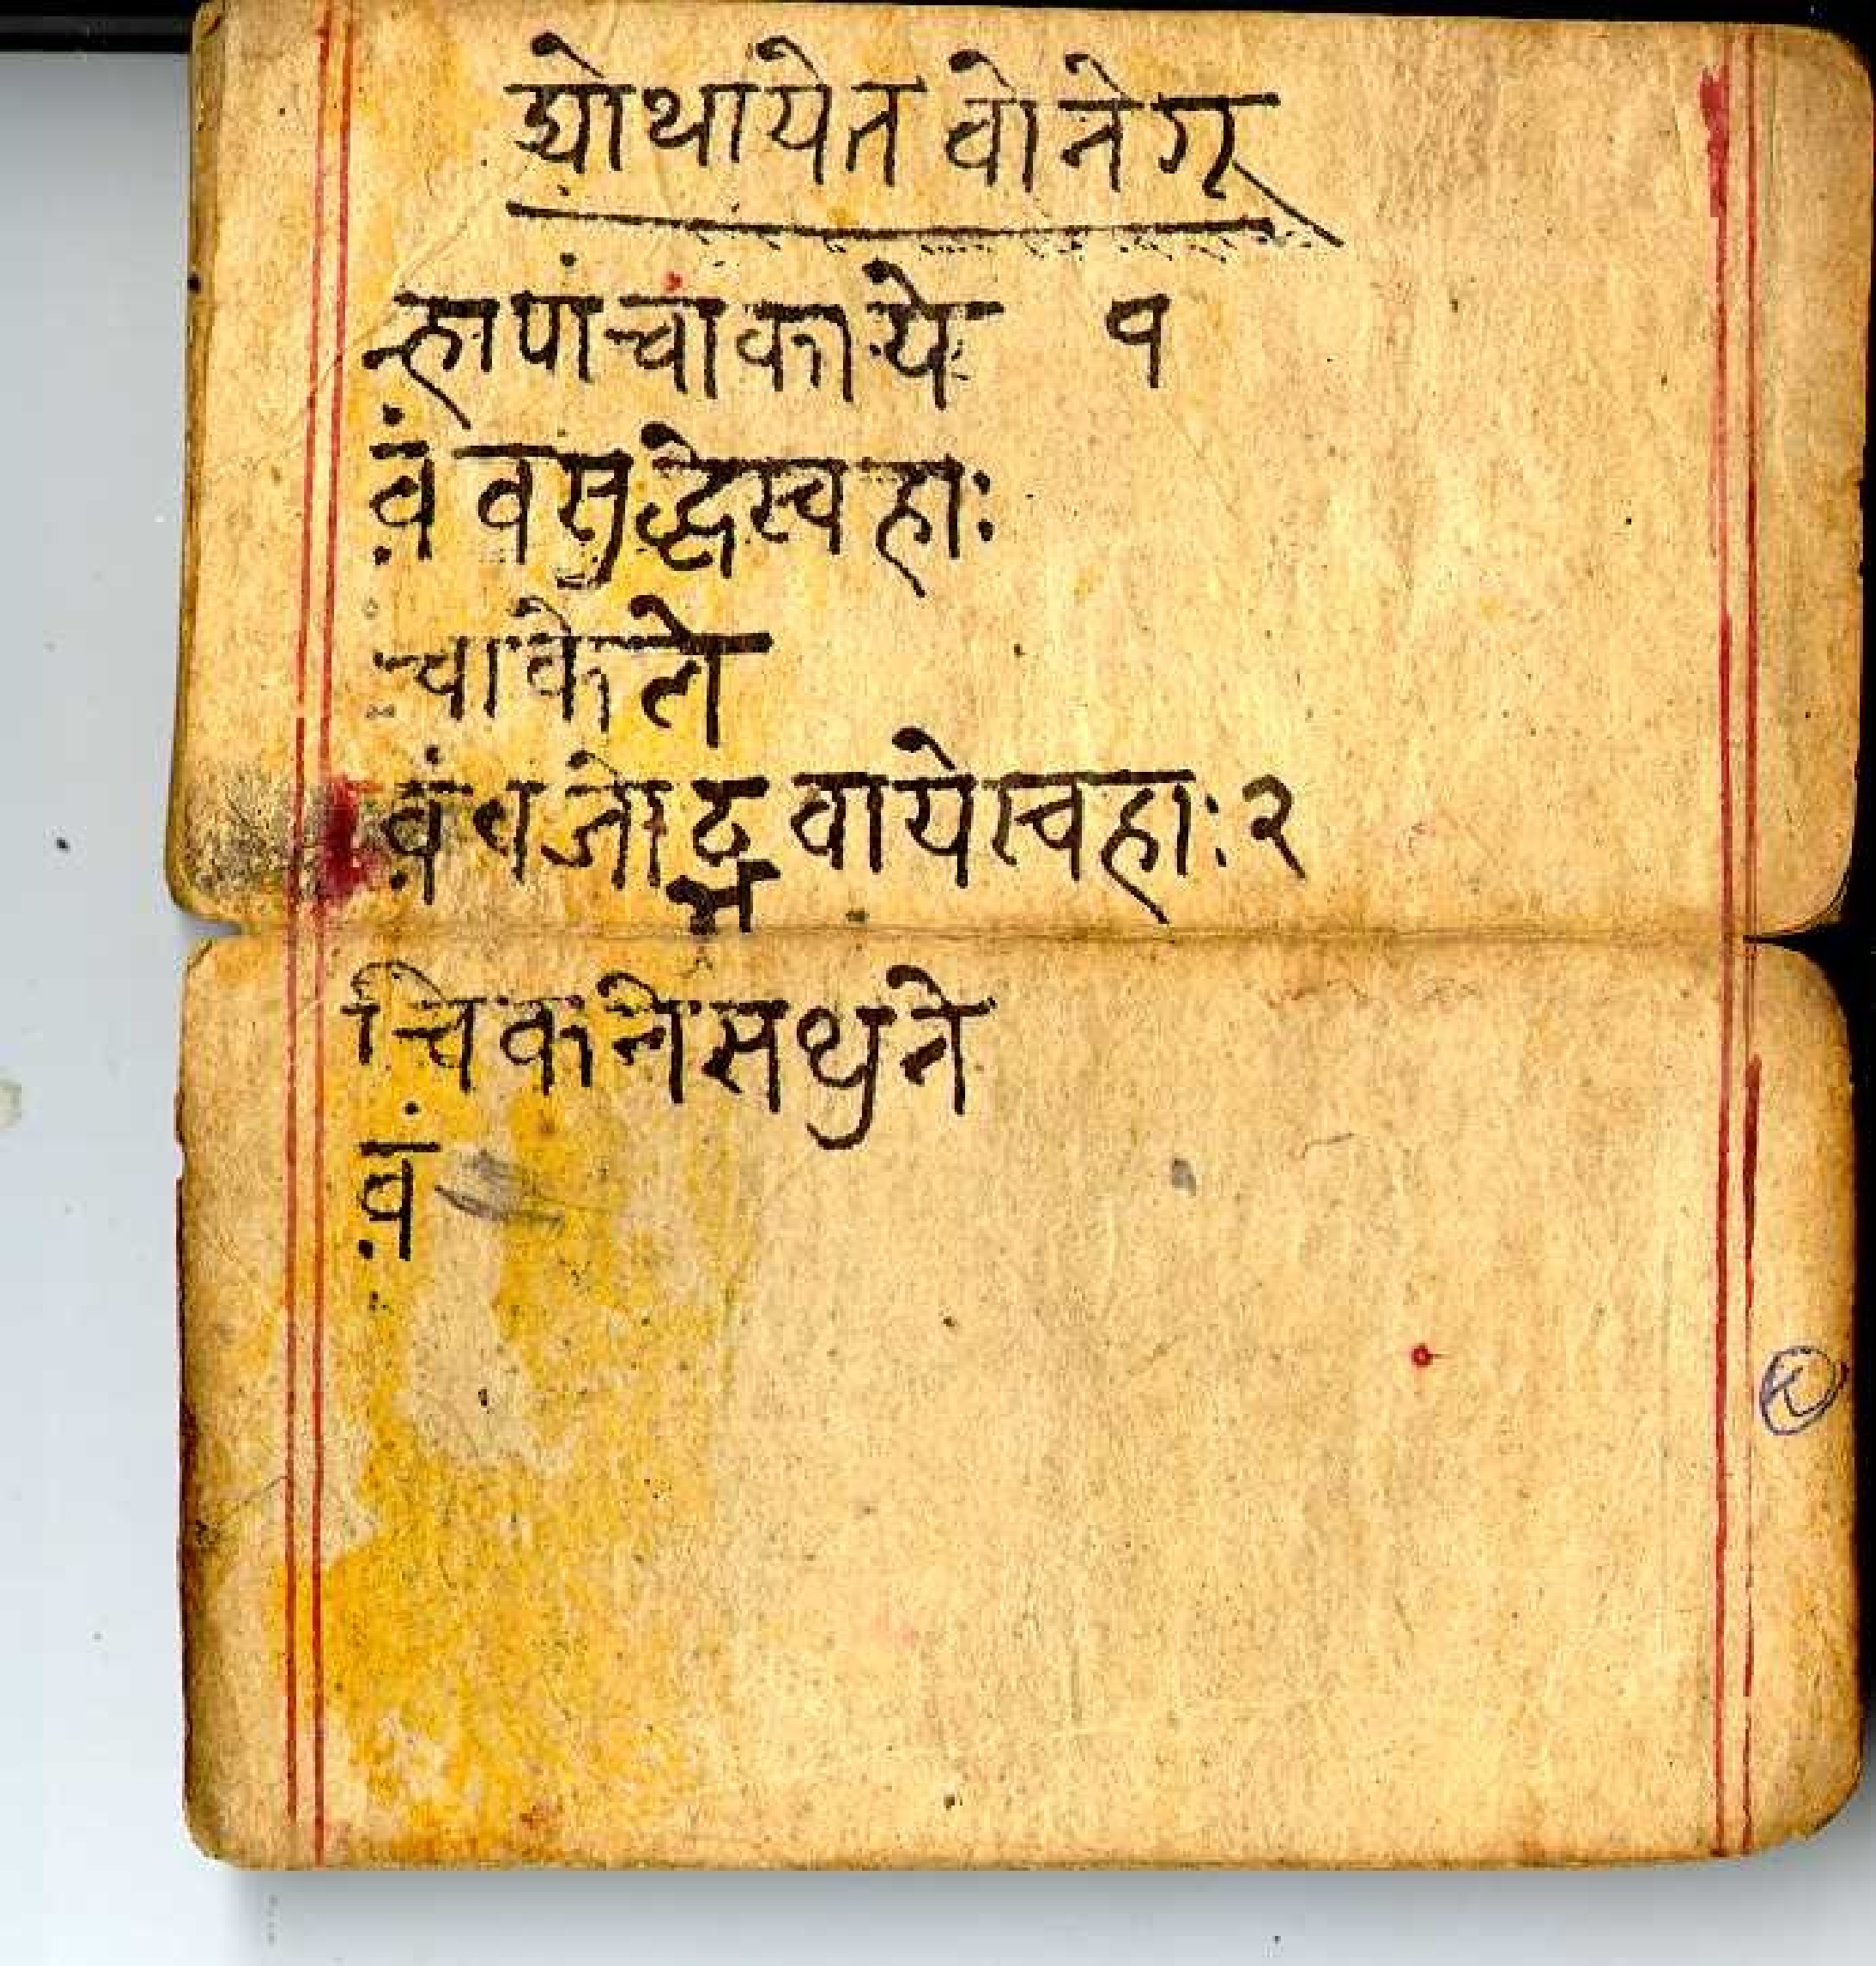 द्योथायेत वोनेगू
न्हापांचांकाये १
वं वसुद्धेस्वहाः
चाकेले
वं वजोद्भवायेस्वहाः २
चिकनेसथुने
वं